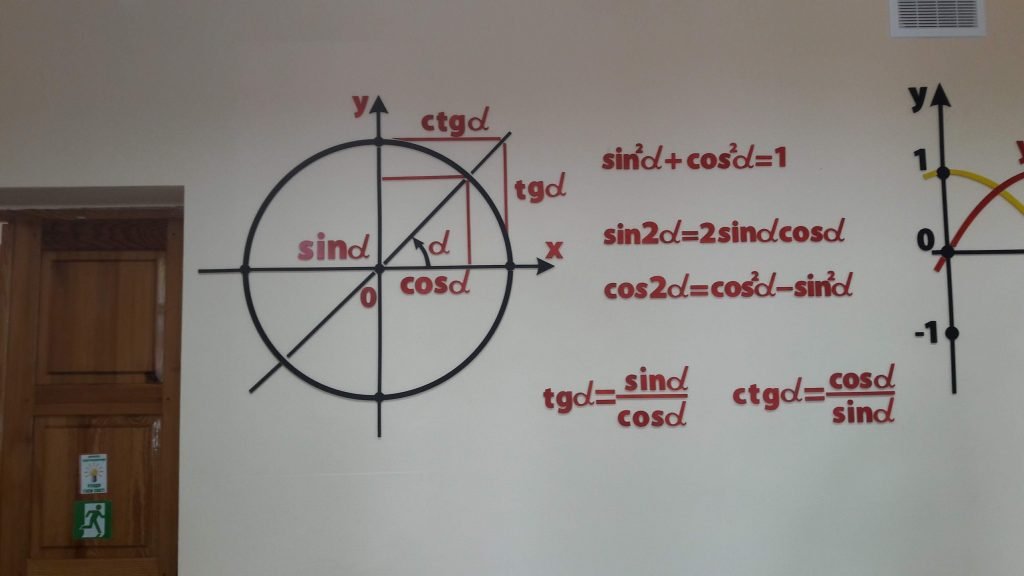 y
ctgα
tgα
sinα
α
x
0
cosα
sin²α+cos²α=1
sin2α=2sinαcosα
cos2α=cos²α-sin²α
tgα=sinα/cosα
ctgα=cosα/sinα
y
1
0
-1